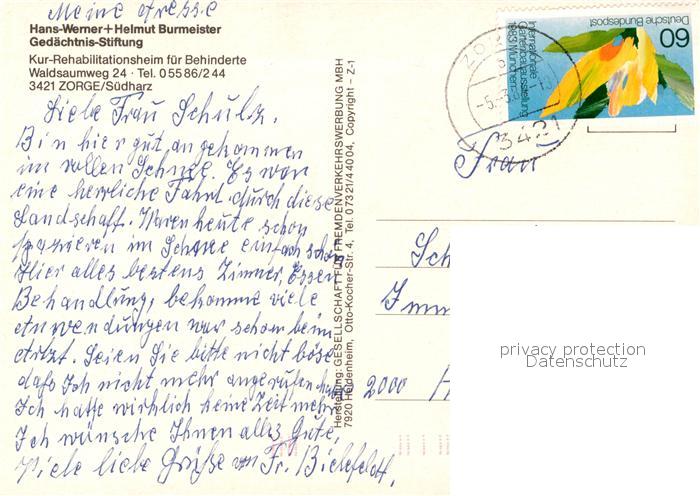 Meine Adresse
Hans-Werner+Helmut Burmeister
Gedächtnis-Stiftung
Kur-Rehabilitationsheim für Behinderte
Waldsaumweg 24 · Tel. 0 55 86/2 44
3421 ZORGE/Südharz
Liebe Frau Schulz.
Bin hier gut angekommen
im vollen Schnee. Es war
eine herrliche Fahrt durch diese
Landschaft. Waren heute schon
spazieren im Schnee einfach schön
Hier alles bestens Zimmer, Essen
Behandlung, bekomme viele
Anwendungen war schon beim
Artzt. Seien Sie bitte nicht böse
daß Ich nicht mehr angerufen habe
Ich hatte wirklich keine Zeit mehr
Ich wünsche Ihnen alles Gute,
Viele liebe Grüße von Fr. Bielefeldt.
Herstellung: GESELLSCHAFT FÜR FREMDENVERKEHRSWERBUNG MBH
7920 Heidenheim, Otto-Kocher-Str. 4, Tel. 07321/44004, Copyright - Z-1
Deutsche Bundespost
60
Internationale
Gartenbauausstellung
1983 München
3421
Frau
Sch
Imm
2000 H
privacy protection
Datenschutz